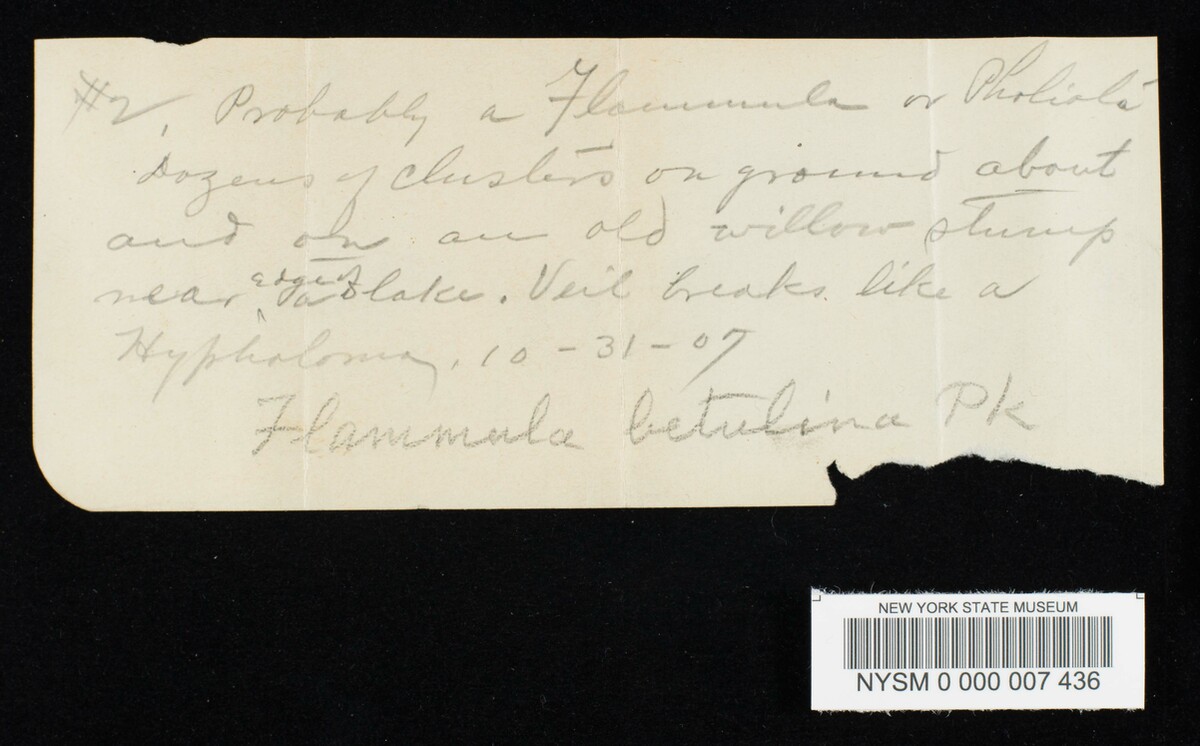 #2, Probably a Flammula or Pholiota
Dozens of clusters on ground about
and on an old willow stump
near edge of a lake. Veil breaks like a
Hypholoma, 10-31-07
Flammula betulina Pk
NEW YORK STATE MUSEUM
NYSM 0 000 007 436